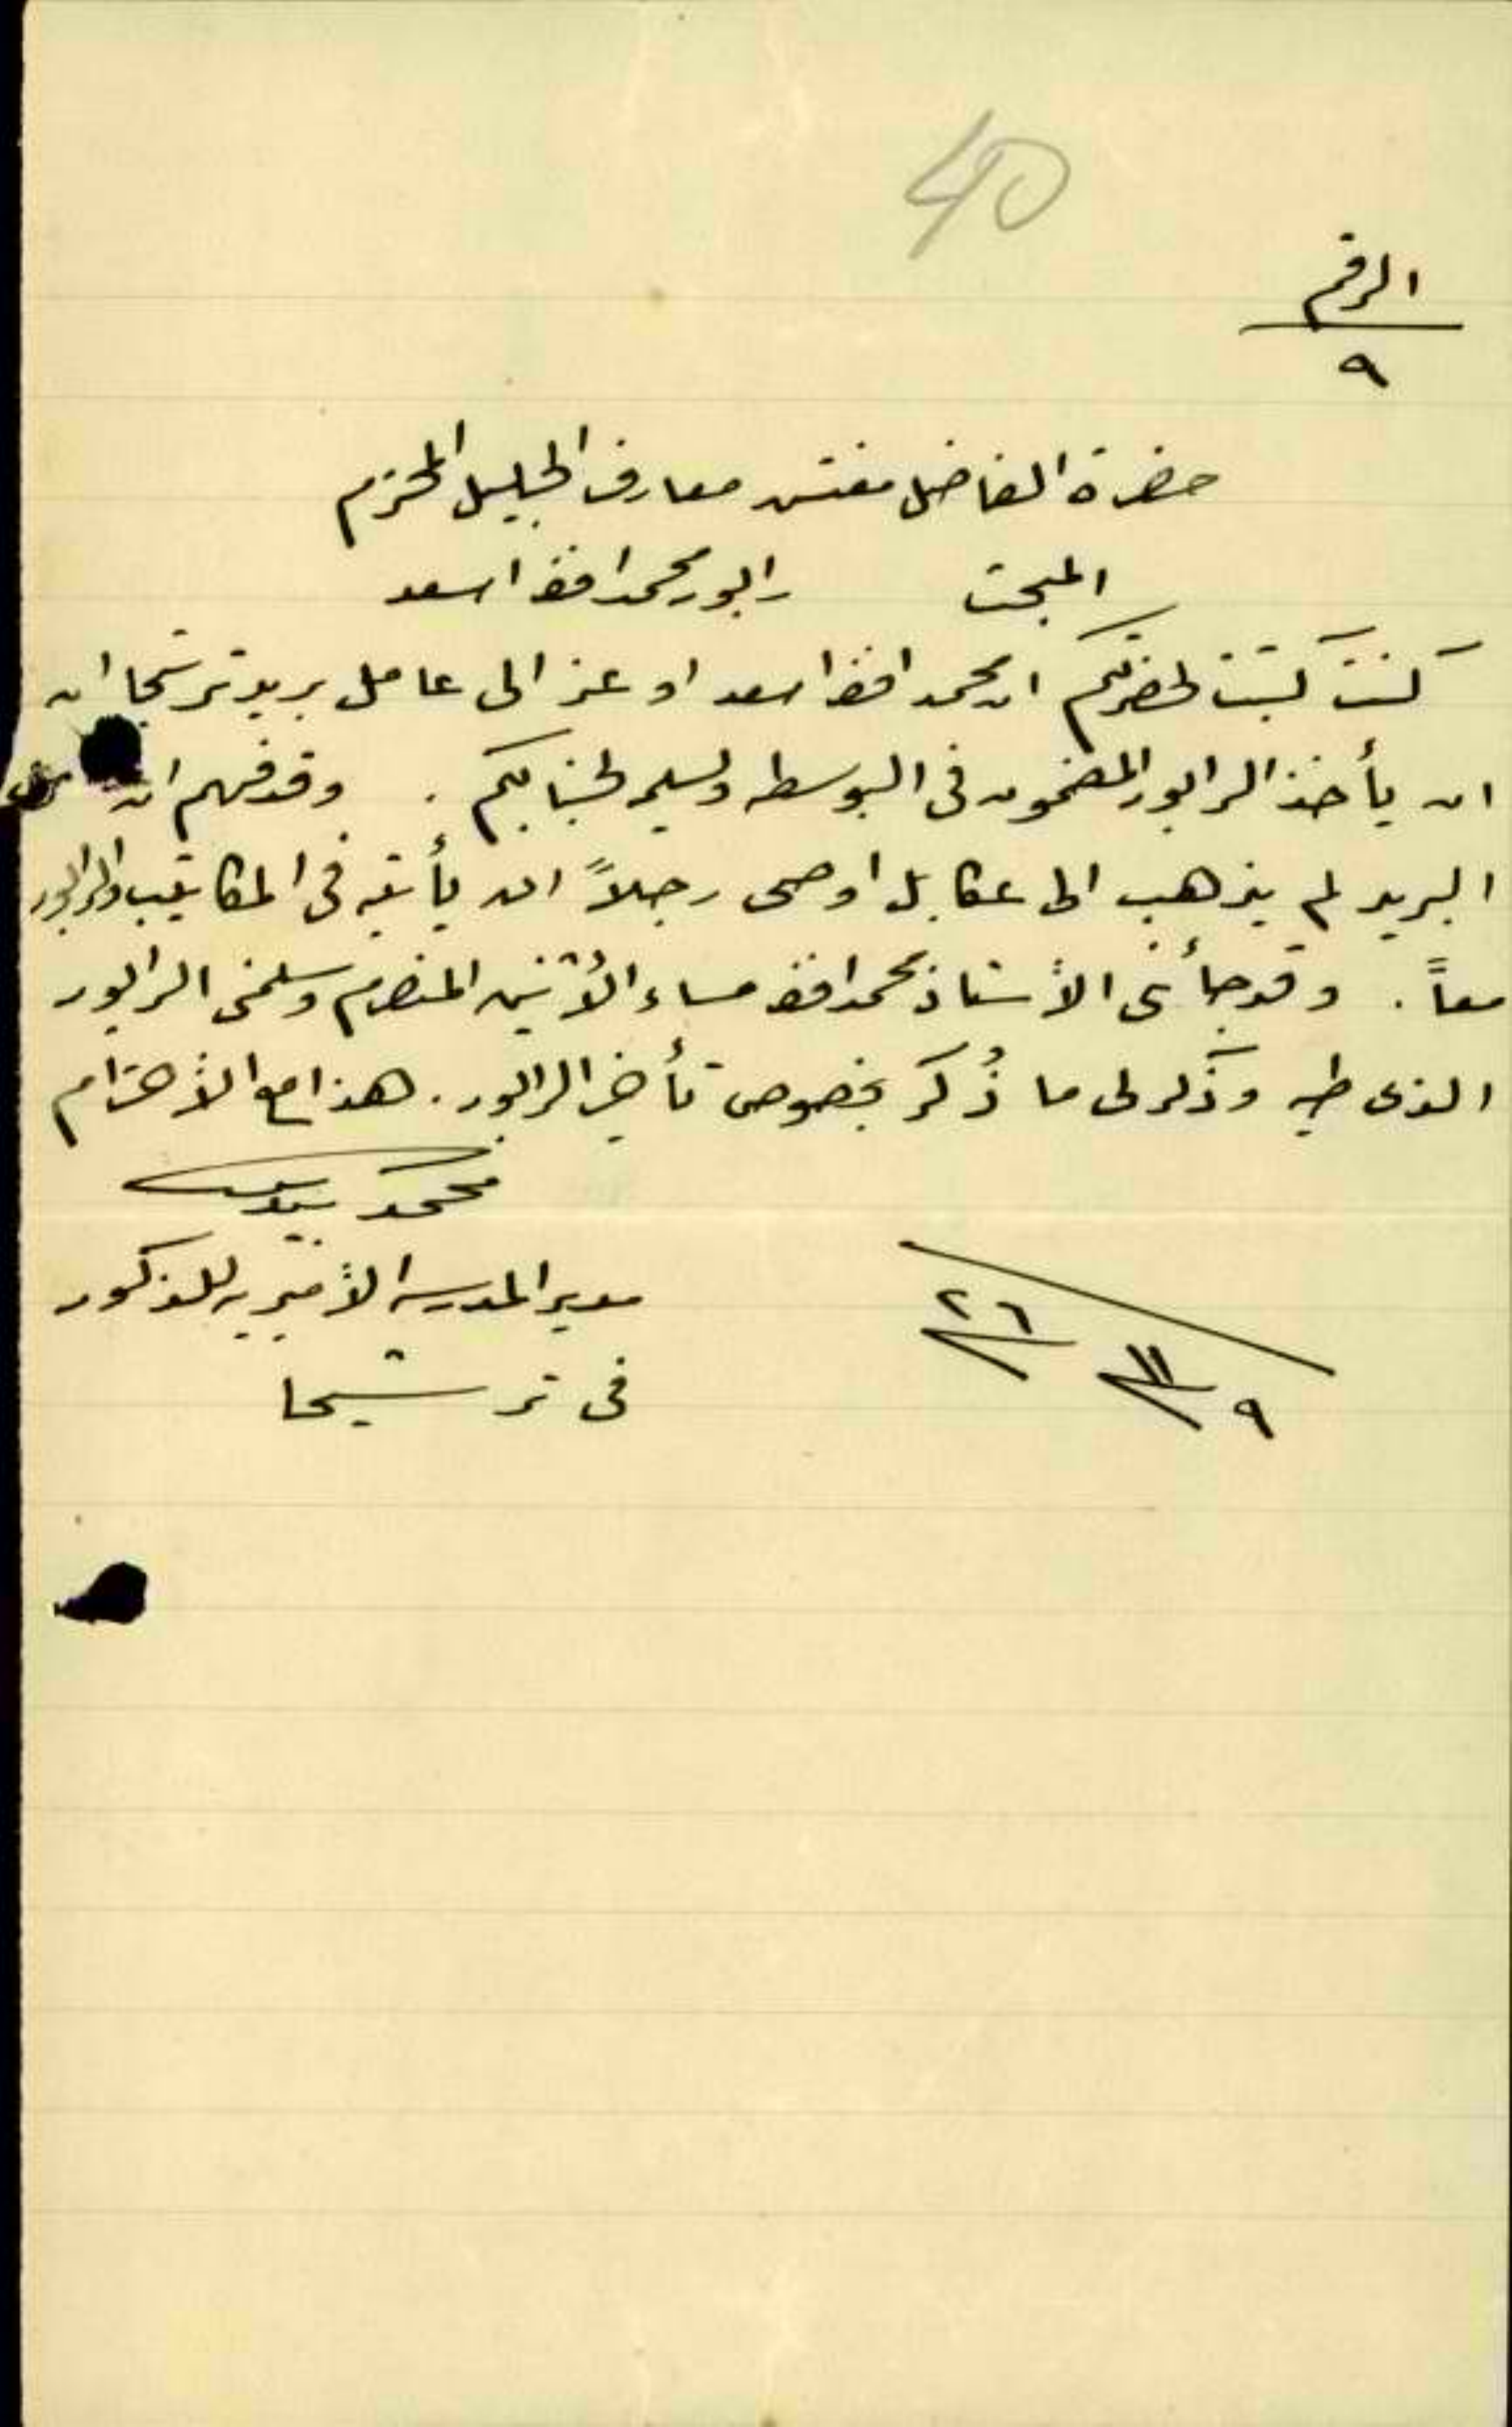 40
الرقم
٩
حضرة الفاضل مفتش معارف الجليل المحترم
المبحث رابور محمد افندي اسعد
كنت كتبت لحضرتكم ان محمد افندي اسعد اوعز الى عامل بريد ترشيحا ان
ان يأخذ الرابور المضمون في البوسطه ويسلمه لجنابكم . وقد فهم ان
البريد لم يذهب الى عكا بل اوصى رجلاً ان يأتيه في المكاتيب والرابور
معاً . وقد جأني الأستاذ محمد افندي مساء الأثنين المنصرم وسلمني الرابور
الذي طيه وذكر لي ما ذُكر بخصوص تأخير الرابور . هذا مع الأحترام
محمد
مدير المدرسة الأميرية للذكور
في ترشيحا
٩ / ١١ / ٢٦